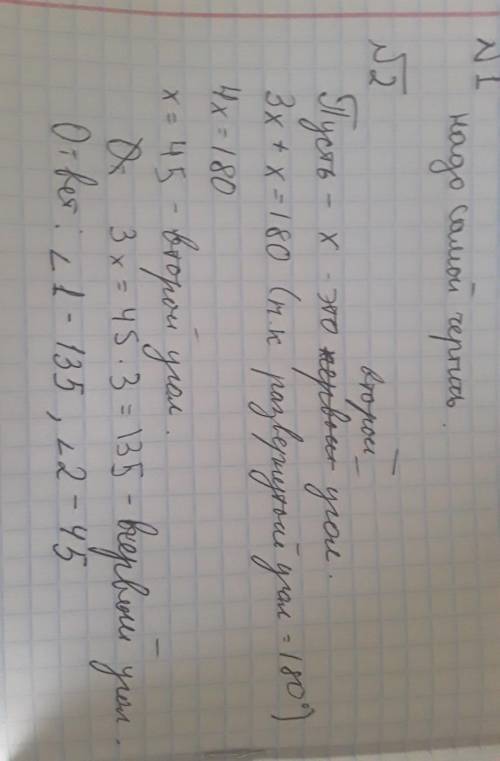 №1
надо самой чертить.
№2
второй
Пусть - x - это первый угол.
3x + x = 180 (т.к развернутый угол = 180°)
4x = 180
x = 45 - второй угол.
3x = 45 · 3 = 135 - первый угол.
Ответ: ∠1 - 135, ∠2 - 45